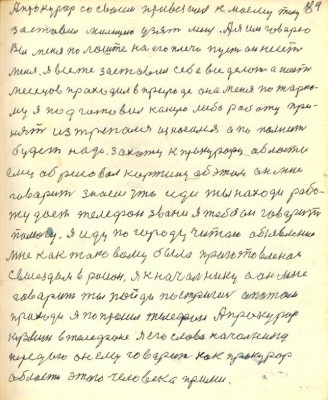 89
А прокурор со своим привезли к моему телу
заставили милицию узят мену. А я им говорю
Вы меня положите на его плечо пусть он несёт
меня. Я вместе заставили себе все делат а шесть
месецов проходил в природе она меня по
му я подготовил какую либо работу при-
нят истрепался износился а то полнит
будет надо. Захожу к прокурору области
ему обрисовал картину об этом он мне
говорит знаем что иди ты находи рабо-
ту дает телефон звани я тебе он говорит
помогу. Я иду по городу читаю объявления
мне как такавому была приготовленая
с выездам в район. Я к началнику а он мне
говорит ты пойди постригис а потом
приходи я попросил телефон А прокурор
в телефоне я его слова началнику
передаю он ему говорит как прокурор
области этого человека прими.